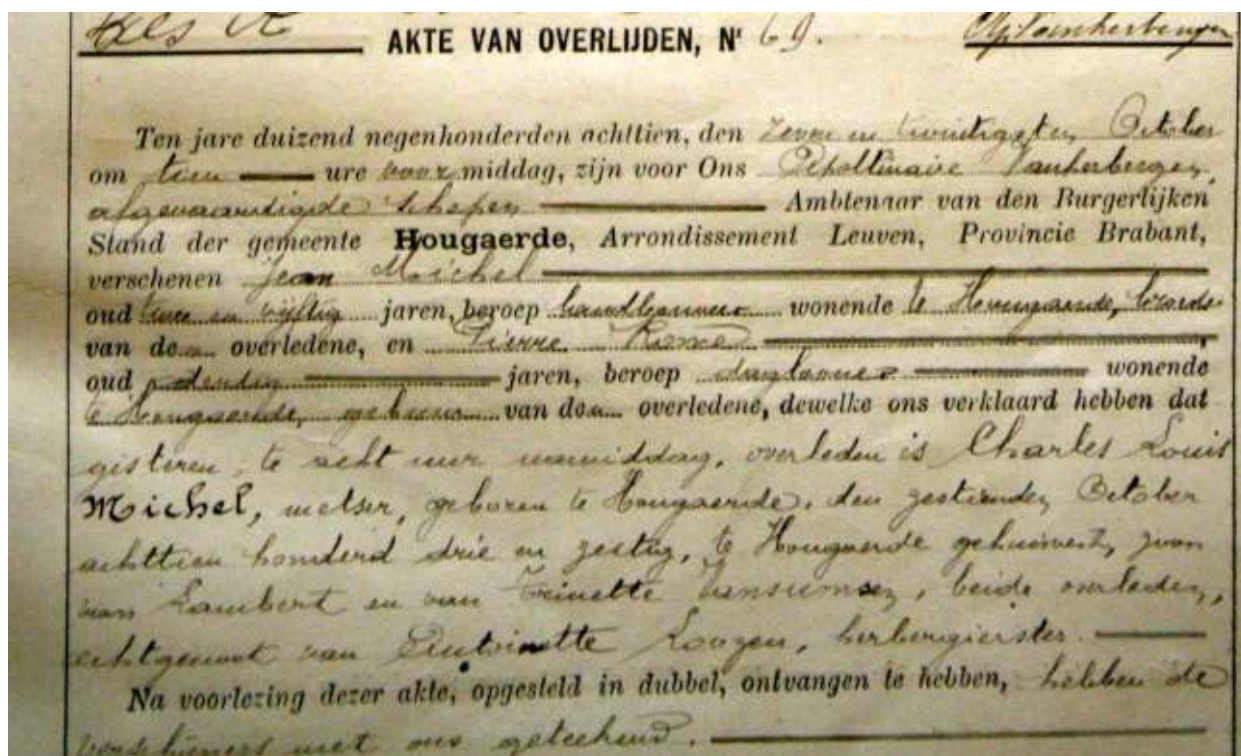 AKTE VAN OVERLIJDEN, Nr 69.
Ten jare duizend negenhonderden achttien, den zeven en twintigsten October
om tien ure voor middag, zijn voor Ons Vanherbergen,
afgevaardigde schepen Ambtenaar van den Burgerlijken
Stand der gemeente Hougaerde, Arrondissement Leuven, Provincie Brabant,
verschenen Jean Michel
oud twee en vijftig jaren, beroep landbouwer wonende te Hougaerde, broeder
van de overledene, en Pierre
oud dertig jaren, beroep daglooner wonende
te Hougaerde, gebuur van de overledene, dewelke ons verklaard hebben dat
gisteren, te acht uur namiddag, overleden is Charles Louis
Michel, metser, geboren te Hougaerde, den zestienden October
achttien honderd drie en zestig, te Hougaerde gehuisvest, zoon
van Lambert en van Trinette , beide overleden,
echtgenoot van Antoinette Loozen, herbergierster.
Na voorlezing dezer akte, opgesteld in dubbel, ontvangen te hebben, hebben de
verschijners met ons geteekend.